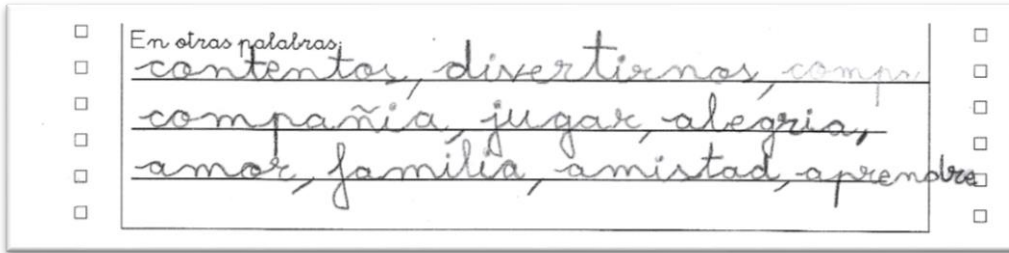 En otras palabras:
contentos, divertirnos, comp
compañia, jugar, alegria,
amor, familia, amistad, aprendre